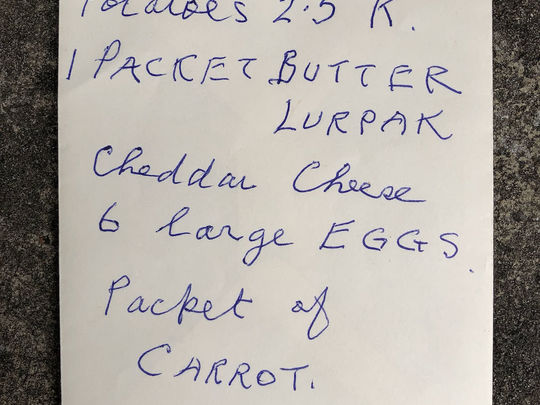 Potatoes 2.5 K.
1 PACKET BUTTER
LURPAK
Cheddar Cheese
6 large EGGS.
Packet of
CARROT.